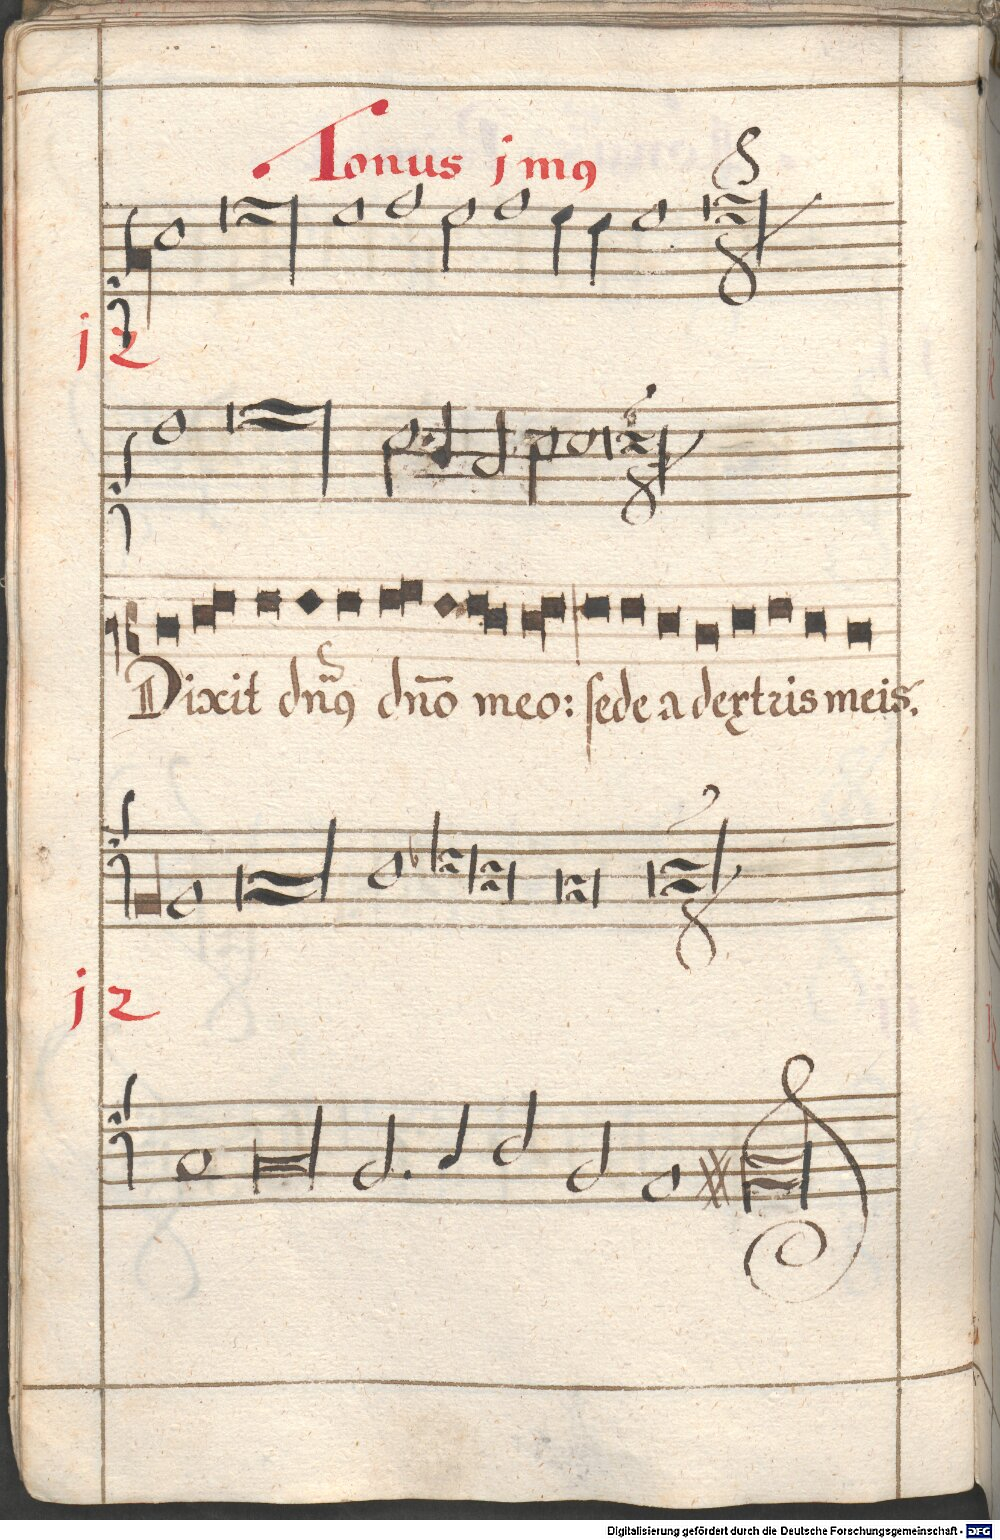 Tonus jmꝯ
j 2
Dixit dn̄ꝯ dn̄o meo: sede a dextris meis.
j 2
Digitalisierung gefördert durch die Deutsche Forschungsgemeinschaft - DFG